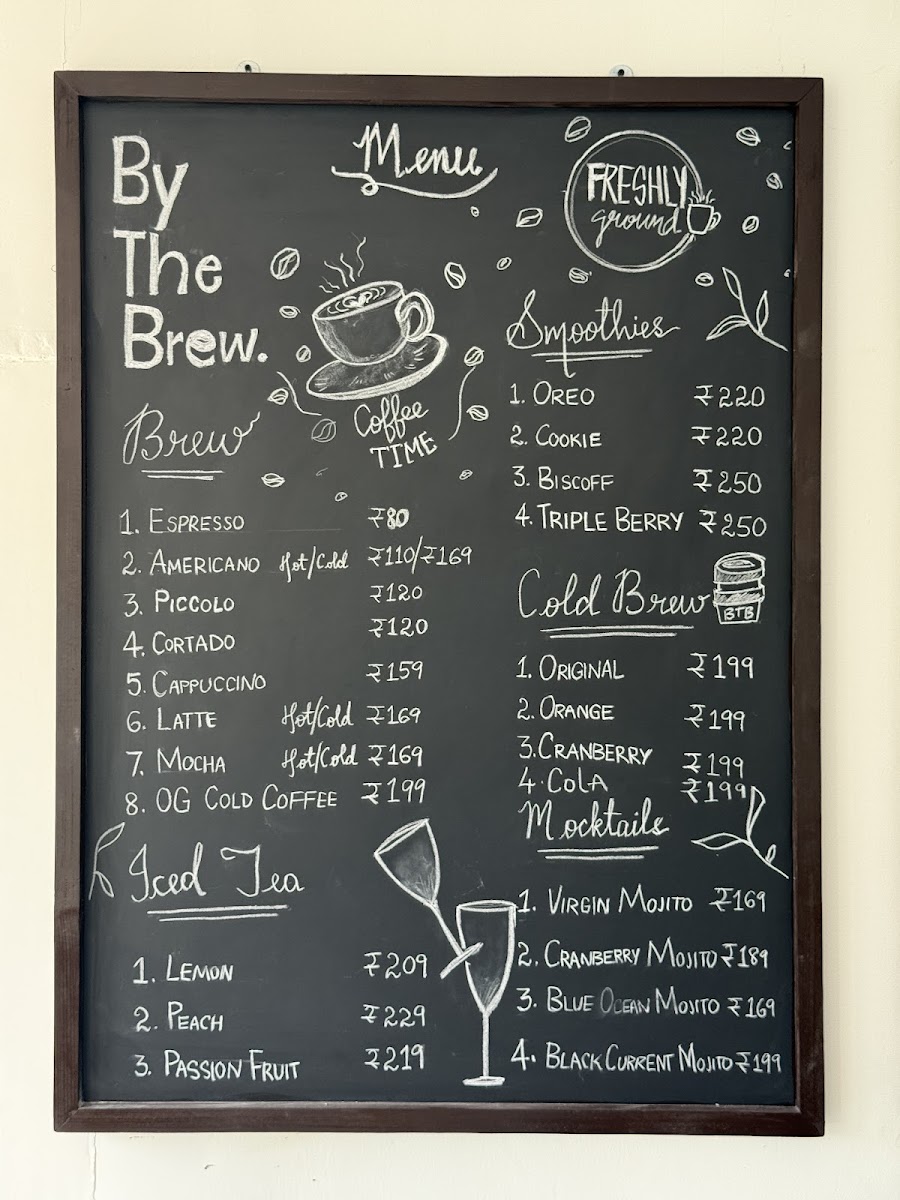 Menu
By
The
Brew.
FRESHLY
ground
Coffee
TIME
Brew
1. ESPRESSO ₹80
2. AMERICANO Hot/Cold ₹110/₹169
3. PICCOLO ₹120
4. CORTADO ₹120
5. CAPPUCCINO ₹159
6. LATTE Hot/Cold ₹169
7. MOCHA Hot/Cold ₹169
8. OG COLD COFFEE ₹199
Iced Tea
1. LEMON ₹209
2. PEACH ₹229
3. PASSION FRUIT ₹219
Smoothies
1. OREO ₹220
2. COOKIE ₹220
3. BISCOFF ₹250
4. TRIPLE BERRY ₹250
Cold Brew
BTB
1. ORIGINAL ₹199
2. ORANGE ₹199
3. CRANBERRY ₹199
4. COLA ₹199
Mocktails
1. VIRGIN MOJITO ₹169
2. CRANBERRY MOJITO ₹189
3. BLUE OCEAN MOJITO ₹169
4. BLACK CURRENT MOJITO ₹199